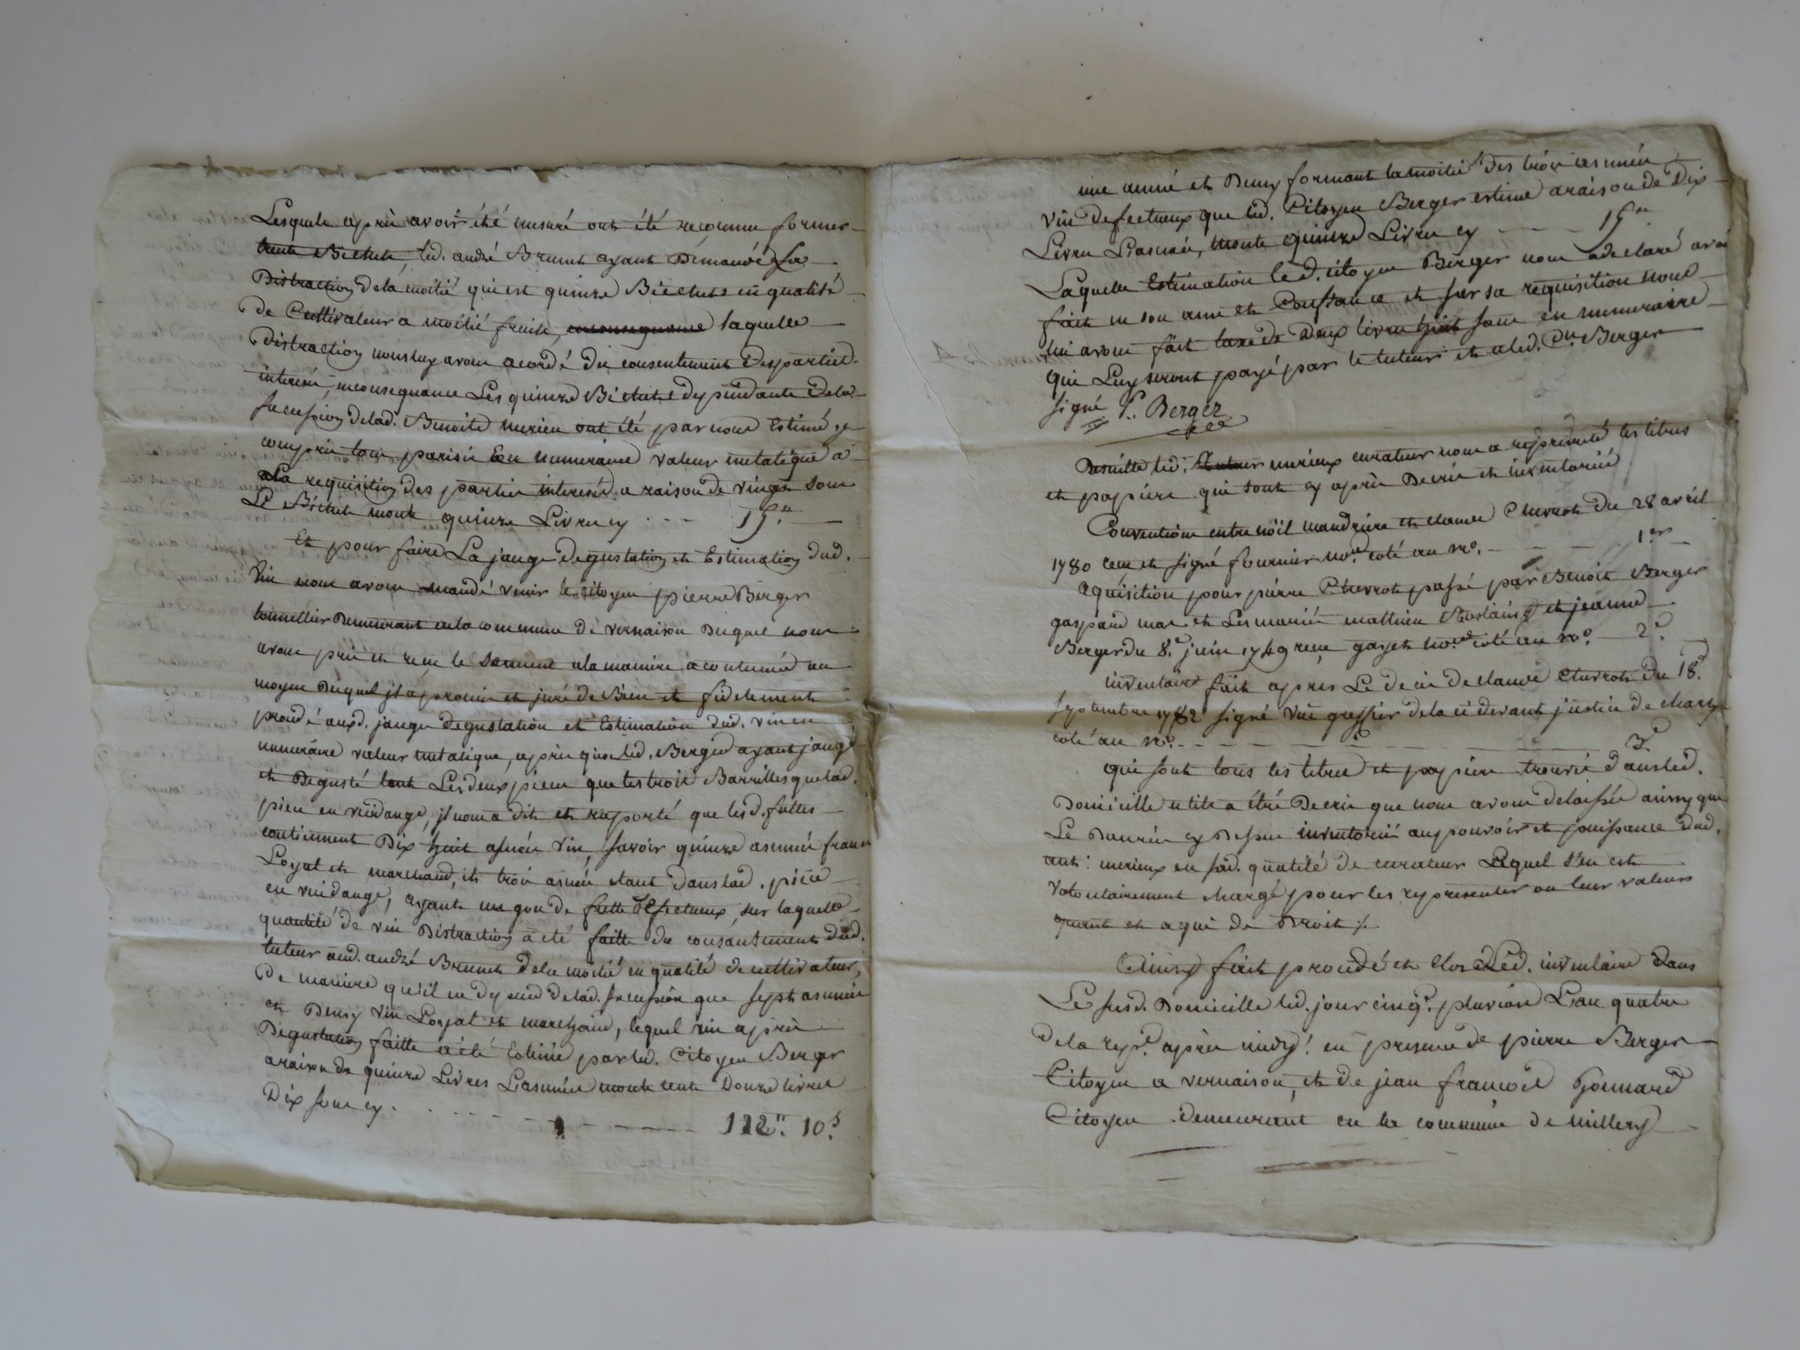 Lesquels aprés avoir été mesuré ont été reconnue former
trente Bichets led. andré Brunet ayant Demandé La
Distraction de la moitié qui est quinze Bichets en qualité
de Cultivateur a moitié fruits, laquelle
Distraction nous luy avons acordé du consentement des partied.
interésé, inconsequance Les quinze Bichets dependants dela
succession delad. Benoite merieu ont été par nous Estimé, y
compris tous parisis En numeraire valeur metalique a
ala requisition des parties interesés a raison de vingt sous
Le Bichet monte quinze Livres cy . . . 15.''
Et pour faire La jauge Degustation et Estimation dud.
Vin nous avons mandé venir le Citoyen pierre Berger
tonnellier Demeurant en la commune de vernaison Duquel nous
avons pris et reçu le serment ala maniere acoutumée au
moyen Duquel jl a promis et juré de Bien et fidelement
procedé auxd. jauge degustation et Estimation dud. vin en
numeraire valeur metalique, aprés quoi led. Berger ayant jaugé
et Degusté tant Les deux pieces que les trois Barrilles que lad.
piece en vuidange, jl nous a dit et raporté que lesd. futtes
contiennent Dix huit asnées vin, savoir quinze asnées franc
Loyal et marchand, et trois asnées etant dans lad. piece
en vuidange, ayant un gou de futte Defectueux, sur laquelle
quantité de vin Distraction a été faitte du consantement dud.
tuteur aud. andré Brunet dela moitié en qualité de cultivateur,
De maniere qu'il ne depend delad. succession que sept asnées
et Demy vin Loyal et marchand, lequel vin aprés
Degustation faitte a été Estimé par led. Citoyen Berger
a raison de quinze Livres L'asnée monte cent Douze livres
Dix sous cy . . . . - - - - - - - 112'' 10.s
une asnée et Demy formant la moitié des trois asnées
vin defectueux que led. Citoyen Berger estime a raison de Dix
Livres L'asnée, monte quinze Livres cy - - - 15''
Laquelle Estimation led. citoyen Berger nous a declaré avoir
fait en son ame et Conscience et sur sa requisition nous
lui avons fait taxe de Deux livres huit sous en numeraire
qui Luy seront payé par le tuteur et a led. Cn. Berger
signé P. Berger
Desuitte led. merieux curateur nous a representé les titres
et papiers qui sont cy aprés Decris et inventorié
Convention entre noël mandrire et claude Chevrot du 28 avril
1780 signé fournier nore. coté au no. - - - 1er
aquisition pour pierre Chevrot passé par Benoit Berger
gaspard mar et Les mariés mathieu et jeanne
Berger du 8e. juin 1749 reçue gayet nore. coté au no. - 2e.
inventaire fait apres Le decés de claude Chevrot du 18.
septembre 1782 signé vial greffier dela ci devant justice de charly
coté au no. - - - - - - - 3e.
qui sont tous les titres et papiers trouvé dans led.
Domicille utile a étre Decris que nous avons delaissée ainsy que
Le Danrées cy Dessus inventorié au pouvoir et puissance dud.
ant: merieux en sad. qualité de curateur Lequel s'en est
volontairement chargé pour les representer ou leur valeur
quant et a qui de Droit ./.
Ainsy fait procedé et clos Led. inventaire dans
Le susd. Domicille led. jour cinq. pluviôse L'an quatre
dela repe. après midy. en presence de pierre Berger
Citoyen a vernaison, et de jean francois Gonnard
Citoyen demeurant en la commune de millery